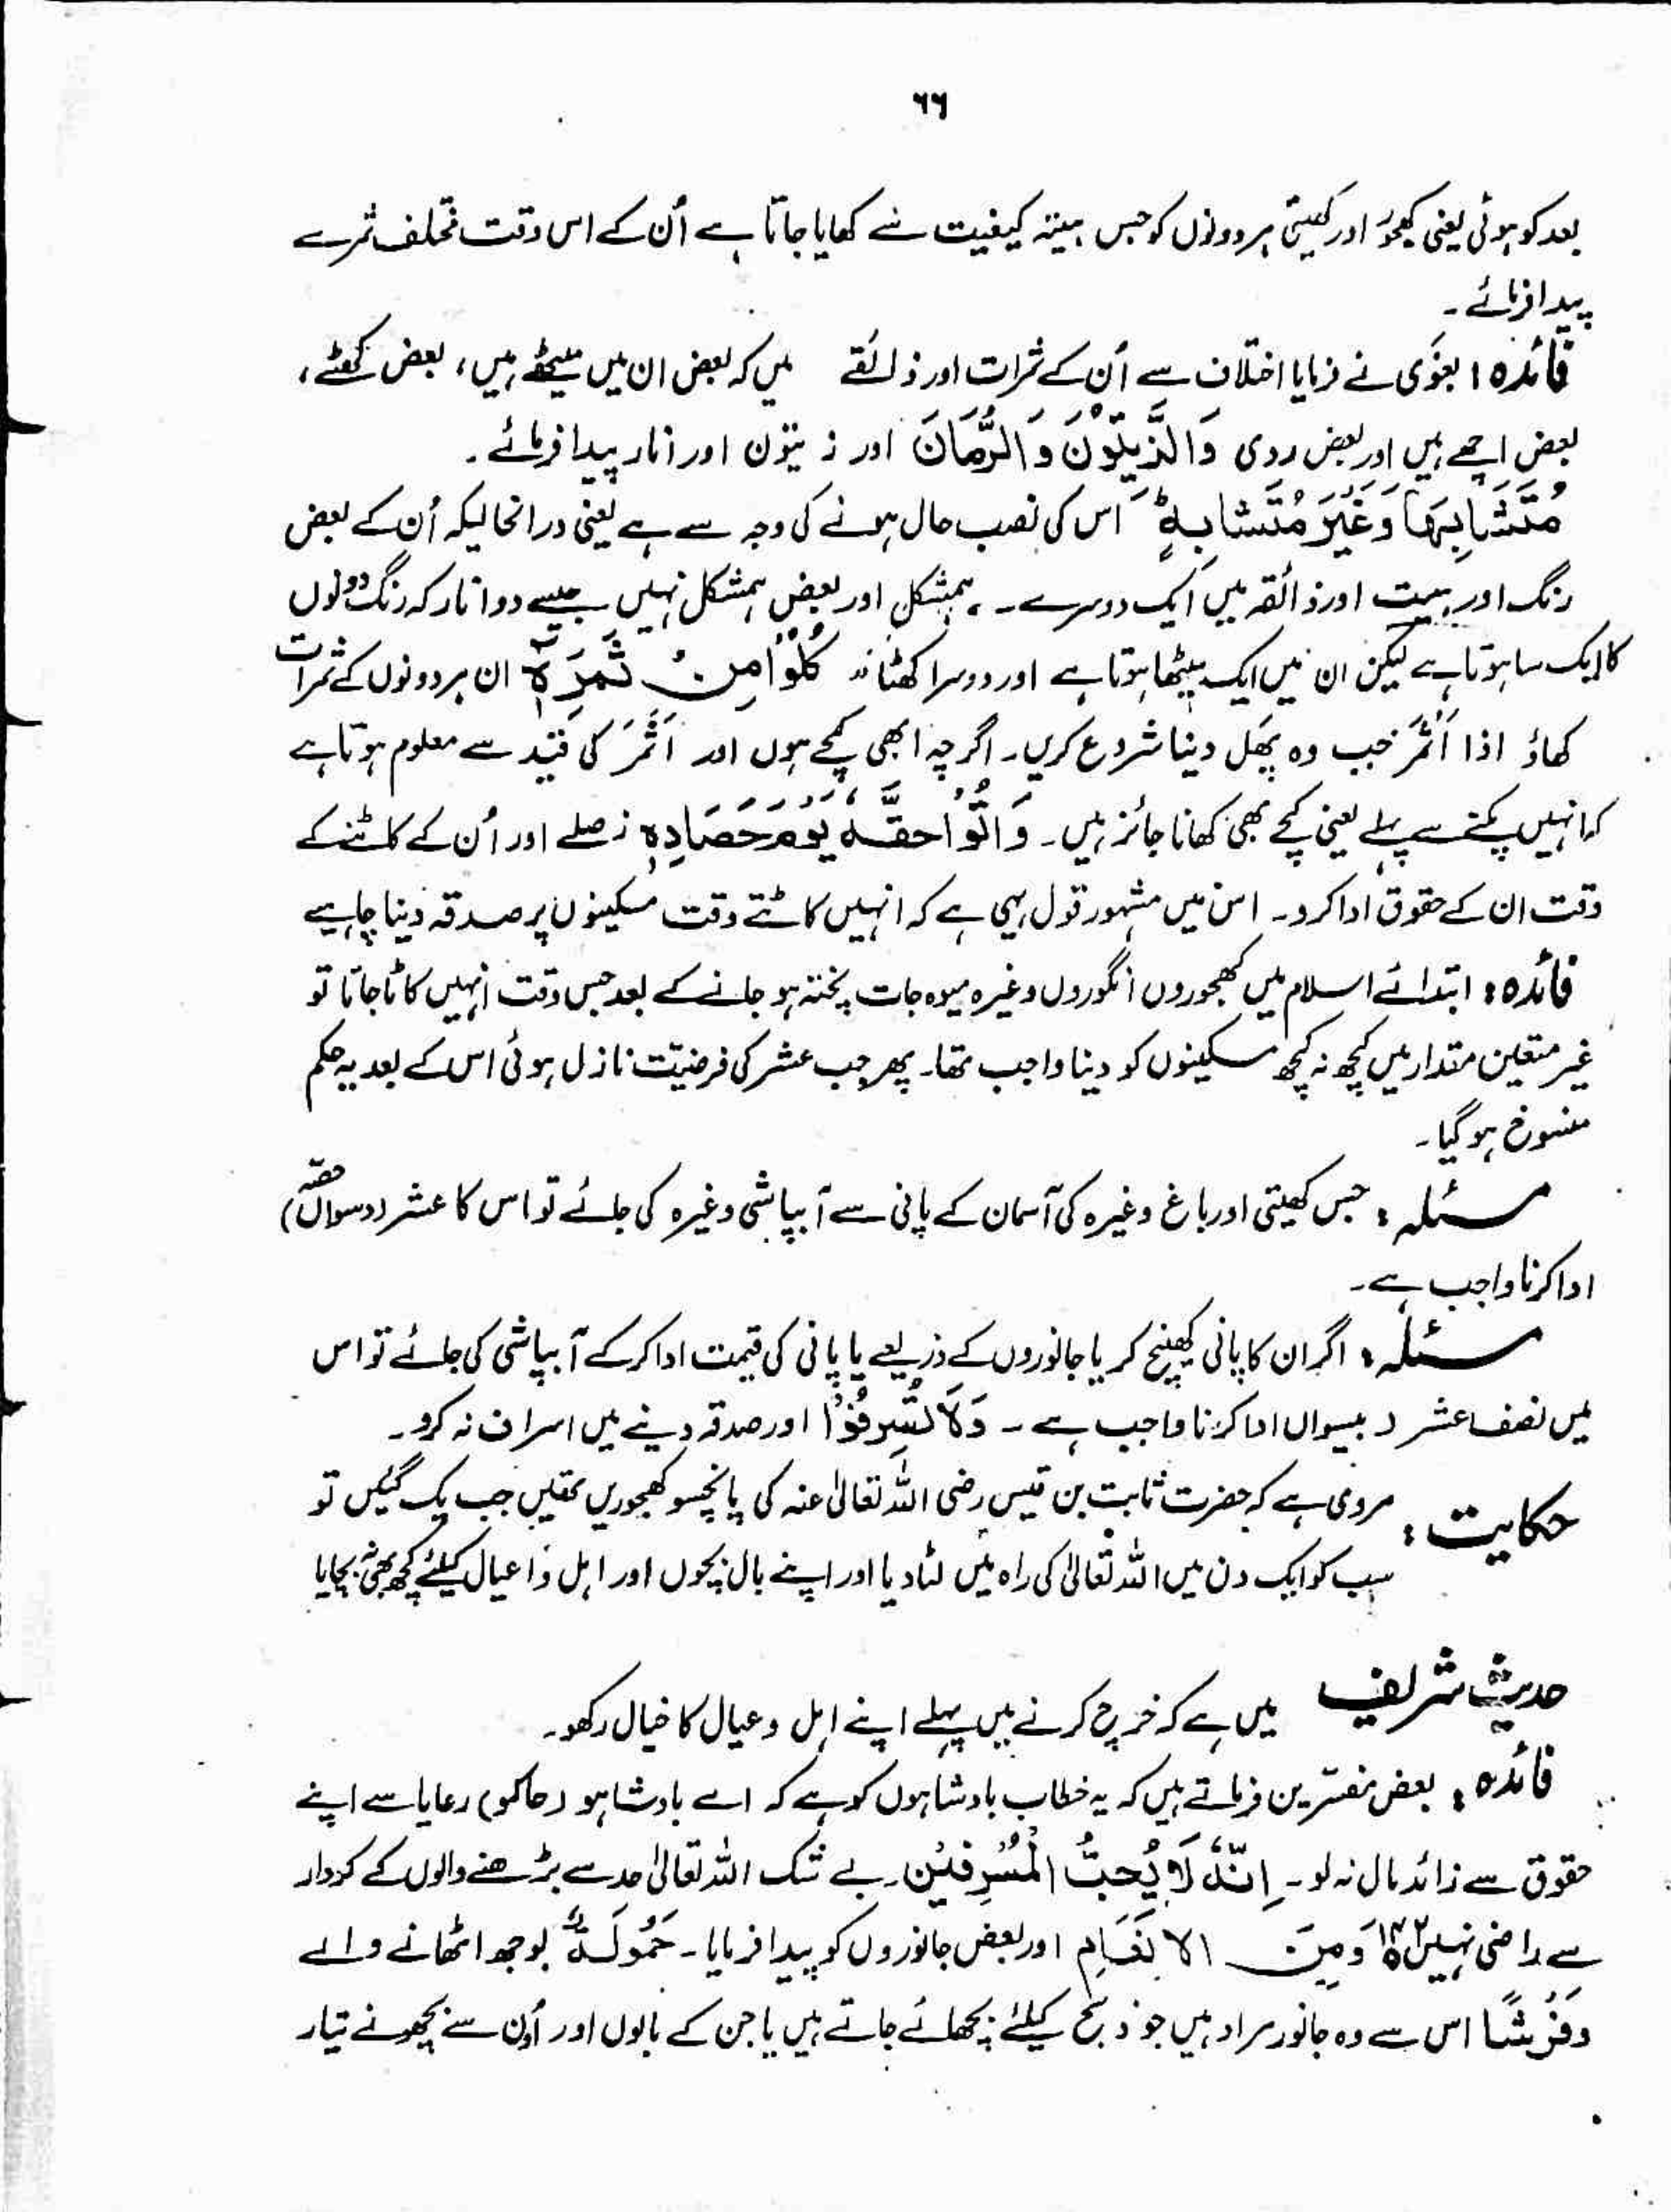 ٦٦
بعد کو ہوئی یعنی کھجور اور کھیتی ہر دونوں کو جس ہیئتہ کیفیت سے کھایا جاتا ہے اُن کے اس وقت مختلف ثمرے
پیدا فرمائے۔
فائدہ: بغوی نے فرمایا اختلاف سے اُن کے ثمرات اور ذائقے میں کہ بعض ان میں میٹھے ہیں، بعض کھٹے،
بعض اچھے ہیں اور بعض ردی وَالزَّیْتُوْنَ وَالرُّمَّانَ اور زیتون اور انار پیدا فرمائے۔
مُتَشَابِہًا وَغَیْرَ مُتَشَابِہٍ اس کی نصب حال ہونے کی وجہ سے ہے یعنی درانحالیکہ اُن کے بعض
رنگ اور ہیئت اور ذائقہ میں ایک دوسرے ۔ ہمشکل اور بعض ہمشکل نہیں جیسے دو انار کہ رنگ دونوں
کا ایک سا ہوتا ہے لیکن ان میں ایک میٹھا ہوتا ہے اور دوسرا کھٹا۔ کُلُوْا مِنْ ثَمَرِہٖ ان ہر دونوں کے ثمرات
کھاؤ اذا اَثْمَرَ جب وہ پھل دینا شروع کریں۔ اگرچہ ابھی کچے ہوں اور اَثْمَرَ کی قید سے معلوم ہوتا ہے
کہ انہیں پکنے سے پہلے یعنی کچے بھی کھانا جائز ہیں۔ وَاٰتُوْا حَقَّہٗ یَوْمَ حَصَادِہٖ فصلے اور اُن کے کاٹنے کے
وقت ان کے حقوق ادا کرو۔ اس میں مشہور قول یہی ہے کہ انہیں کاٹتے وقت مسکینوں پر صدقہ دینا چاہیے
فائدہ: ابتدائے اسلام میں کھجوروں انگوروں وغیرہ میوہ جات پختہ ہو جانے کے بعد جس وقت انہیں کاٹا جاتا تو
غیر متعین مقدار میں کچھ نہ کچھ مسکینوں کو دینا واجب تھا۔ پھر جب عشر کی فرضیت نازل ہوئی اس کے بعد یہ حکم
منسوخ ہو گیا۔
مسئلہ: جس کھیتی اور باغ وغیرہ کی آسمان کے پانی سے آبپاشی وغیرہ کی جائے تو اس کا عشر (دسواں حصّہ)
ادا کرنا واجب ہے۔
مسئلہ: اگر ان کا پانی کھینچ کر یا جانوروں کے ذریعے یا پانی کی قیمت ادا کر کے آبپاشی کی جائے تو اس
میں نصف عشر ( بیسواں ادا کرنا واجب ہے ۔ وَلَا تُسْرِفُوْا اور صدقہ دینے میں اسراف نہ کرو۔
حکایت: مروی ہے کہ حضرت ثابت بن قیس رضی اللہ تعالیٰ عنہ کی پانچسو کھجوریں تھیں جب پک گئیں تو
سب کو ایک دن میں اللہ تعالیٰ کی راہ میں لٹا دیا اور اپنے بال بچوں اور اہل وَ اعیال کیلئے کچھ بھی نہ بچایا
حدیث شریف میں ہے کہ خرچ کرنے میں پہلے اپنے اہل و عیال کا خیال رکھو۔
فائدہ: بعض مفسّرین فرماتے ہیں کہ یہ خطاب بادشاہوں کو ہے کہ اے بادشاہو (حاکمو) رعایا سے اپنے
حقوق سے زائد مال نہ لو۔ اِنَّہٗ لَا یُحِبُّ الْمُسْرِفِیْنَ۔ بے شک اللہ تعالیٰ حد سے بڑھنے والوں کے کردار
سے راضی نہیں وَمِنَ الْاَنْعَامِ اور بعض جانوروں کو پیدا فرمایا۔ حَمُوْلَۃً بوجھ اٹھانے والے
وَفَرْشًا اس سے وہ جانور مراد ہیں جو ذبح کیلئے بچھائے جاتے ہیں یا جن کے بالوں اور اُون سے بچھونے تیار